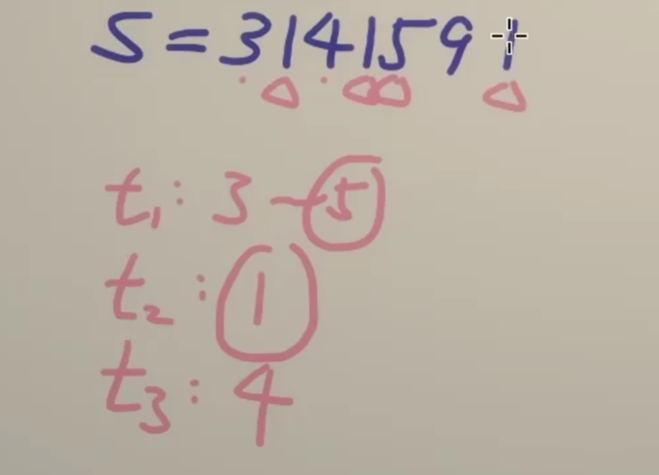 S = 3141591
t₁: 3 - 5
t₂: 1
t₃: 4